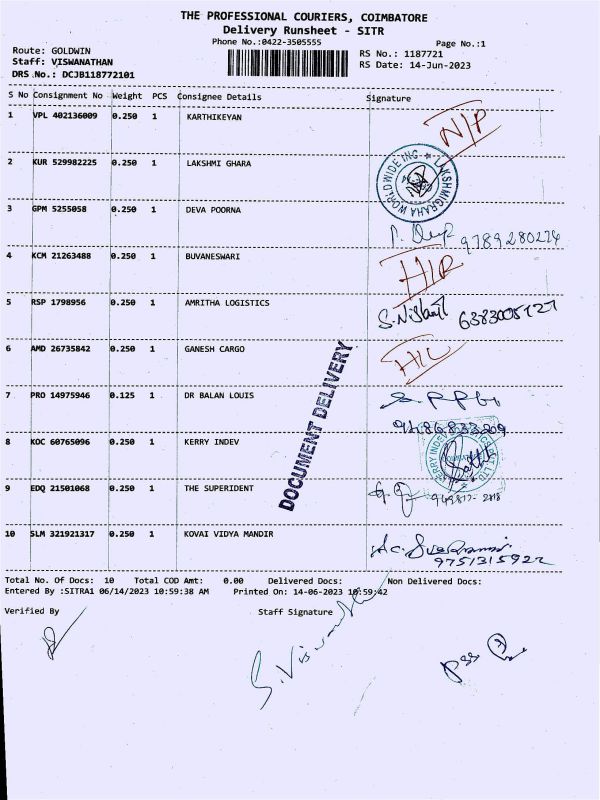 THE PROFESSIONAL COURIERS, COIMBATORE
Delivery Runsheet - SITR
Phone No.:0422-3505555
Page No.:1
Route: GOLDWIN
RS No.: 1187721
Staff: VISWANATHAN
RS Date: 14-Jun-2023
DRS No.: DCJB118772101
S No Consignment No Weight PCS Consignee Details Signature
1 VPL 402136009 0.250 1 KARTHIKEYAN N/P
2 KUR 529982225 0.250 1 LAKSHMI GHARA
LAKSHMIGRAHA WORLDWIDE ING
3 GPM 5255058 0.250 1 DEVA POORNA
9789280274
4 KCM 21263488 0.250 1 BUVANESWARI
5 RSP 1798956 0.250 1 AMRITHA LOGISTICS
S. Nishanth 6383005727
6 AMD 26735842 0.250 1 GANESH CARGO
7 PRO 14975946 0.125 1 DR BALAN LOUIS
9486833209
DOCUMENT DELIVERY
8 KOC 60765096 0.250 1 KERRY INDEV
9 EDQ 21501068 0.250 1 THE SUPERIDENT
10 SLM 321921317 0.250 1 KOVAI VIDYA MANDIR
9751315922
Total No. Of Docs: 10 Total COD Amt: 0.00 Delivered Docs: Non Delivered Docs:
Entered By :SITRA1 06/14/2023 10:59:38 AM Printed On: 14-06-2023 10:59:42
Verified By Staff Signature